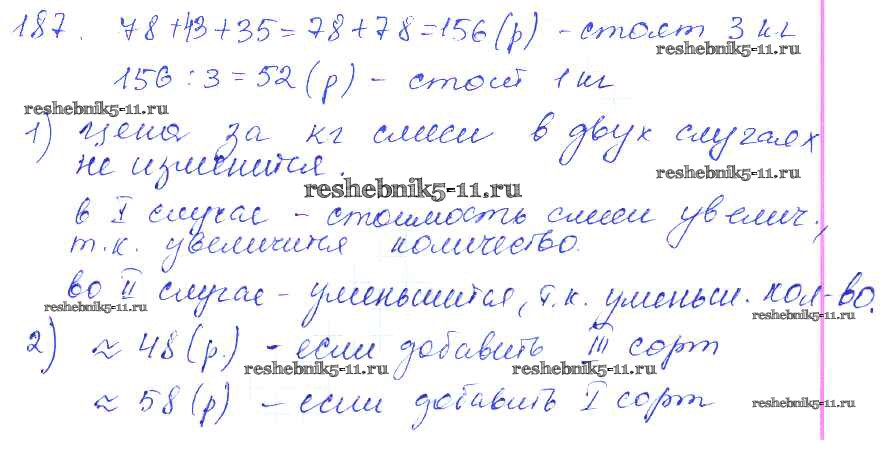 187. 78+43+35=78+78=156(р) - стоят 3 кг
reshebnik5-11.ru
156:3=52(р) - стоит 1 кг
reshebnik5-11.ru
1) Цена за кг смеси в двух случаях
не изменится.
reshebnik5-11.ru
reshebnik5-11.ru
в I случае - стоимость смеси увелич.,
т.к. увеличится количество.
во II случае - уменьшится, т.к. уменьш. кол-во.
reshebnik5-11.ru
reshebnik5-11.ru
2) ≈ 48(р.) - если добавить III сорт
reshebnik5-11.ru
reshebnik5-11.ru
≈ 58(р) - если добавить I сорт
reshebnik5-11.ru